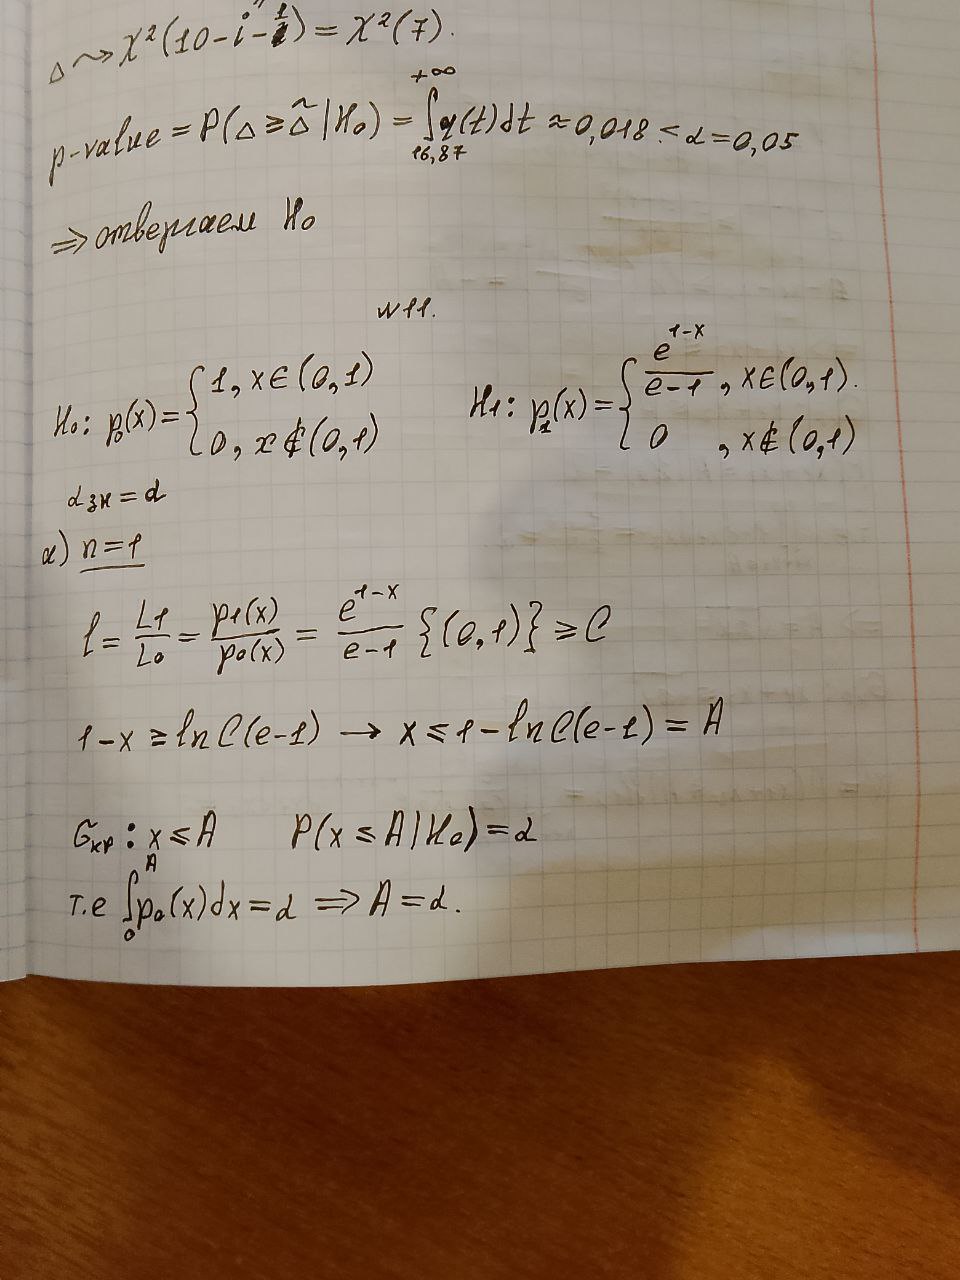 Δ ⇝ χ²(10-i-1) = χ²(7).
p-value = P(Δ ≥ Δ̃ | H₀) = ∫_{16,87}^{+∞} q(t)dt ≈ 0,018 < α = 0,05
⇒ отвергаем H₀
N11.
H₀: p₀(x) = { 1, x∈(0,1) ; 0, x∉(0,1)    H1: p₁(x) = { e^{1-x}/(e-1), x∈(0,1). ; 0, x∉(0,1)
α зн = α
а) n=1
l = L1/L₀ = p1(x)/p₀(x) = e^{1-x}/(e-1) {(0,1)} ≥ C
1-x ≥ ln C(e-1) → x ≤ 1-ln C(e-1) = A
Gкр: x ≤ A    P(x ≤ A | H₀) = α
т.е ∫_{0}^{A} p₀(x)dx = α ⇒ A = α.